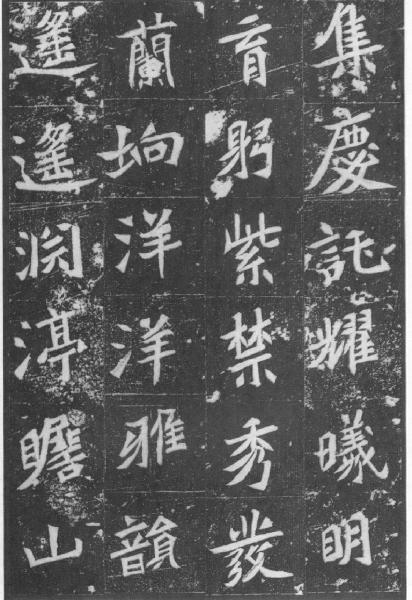 集慶託耀曦明
育躬紫禁秀發
蘭坰洋洋雅韻
遙遙淵渟瞻山